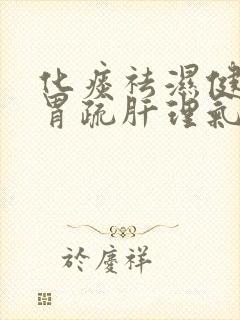 化痰祛濕健
胃疏肝理氣
於慶祥